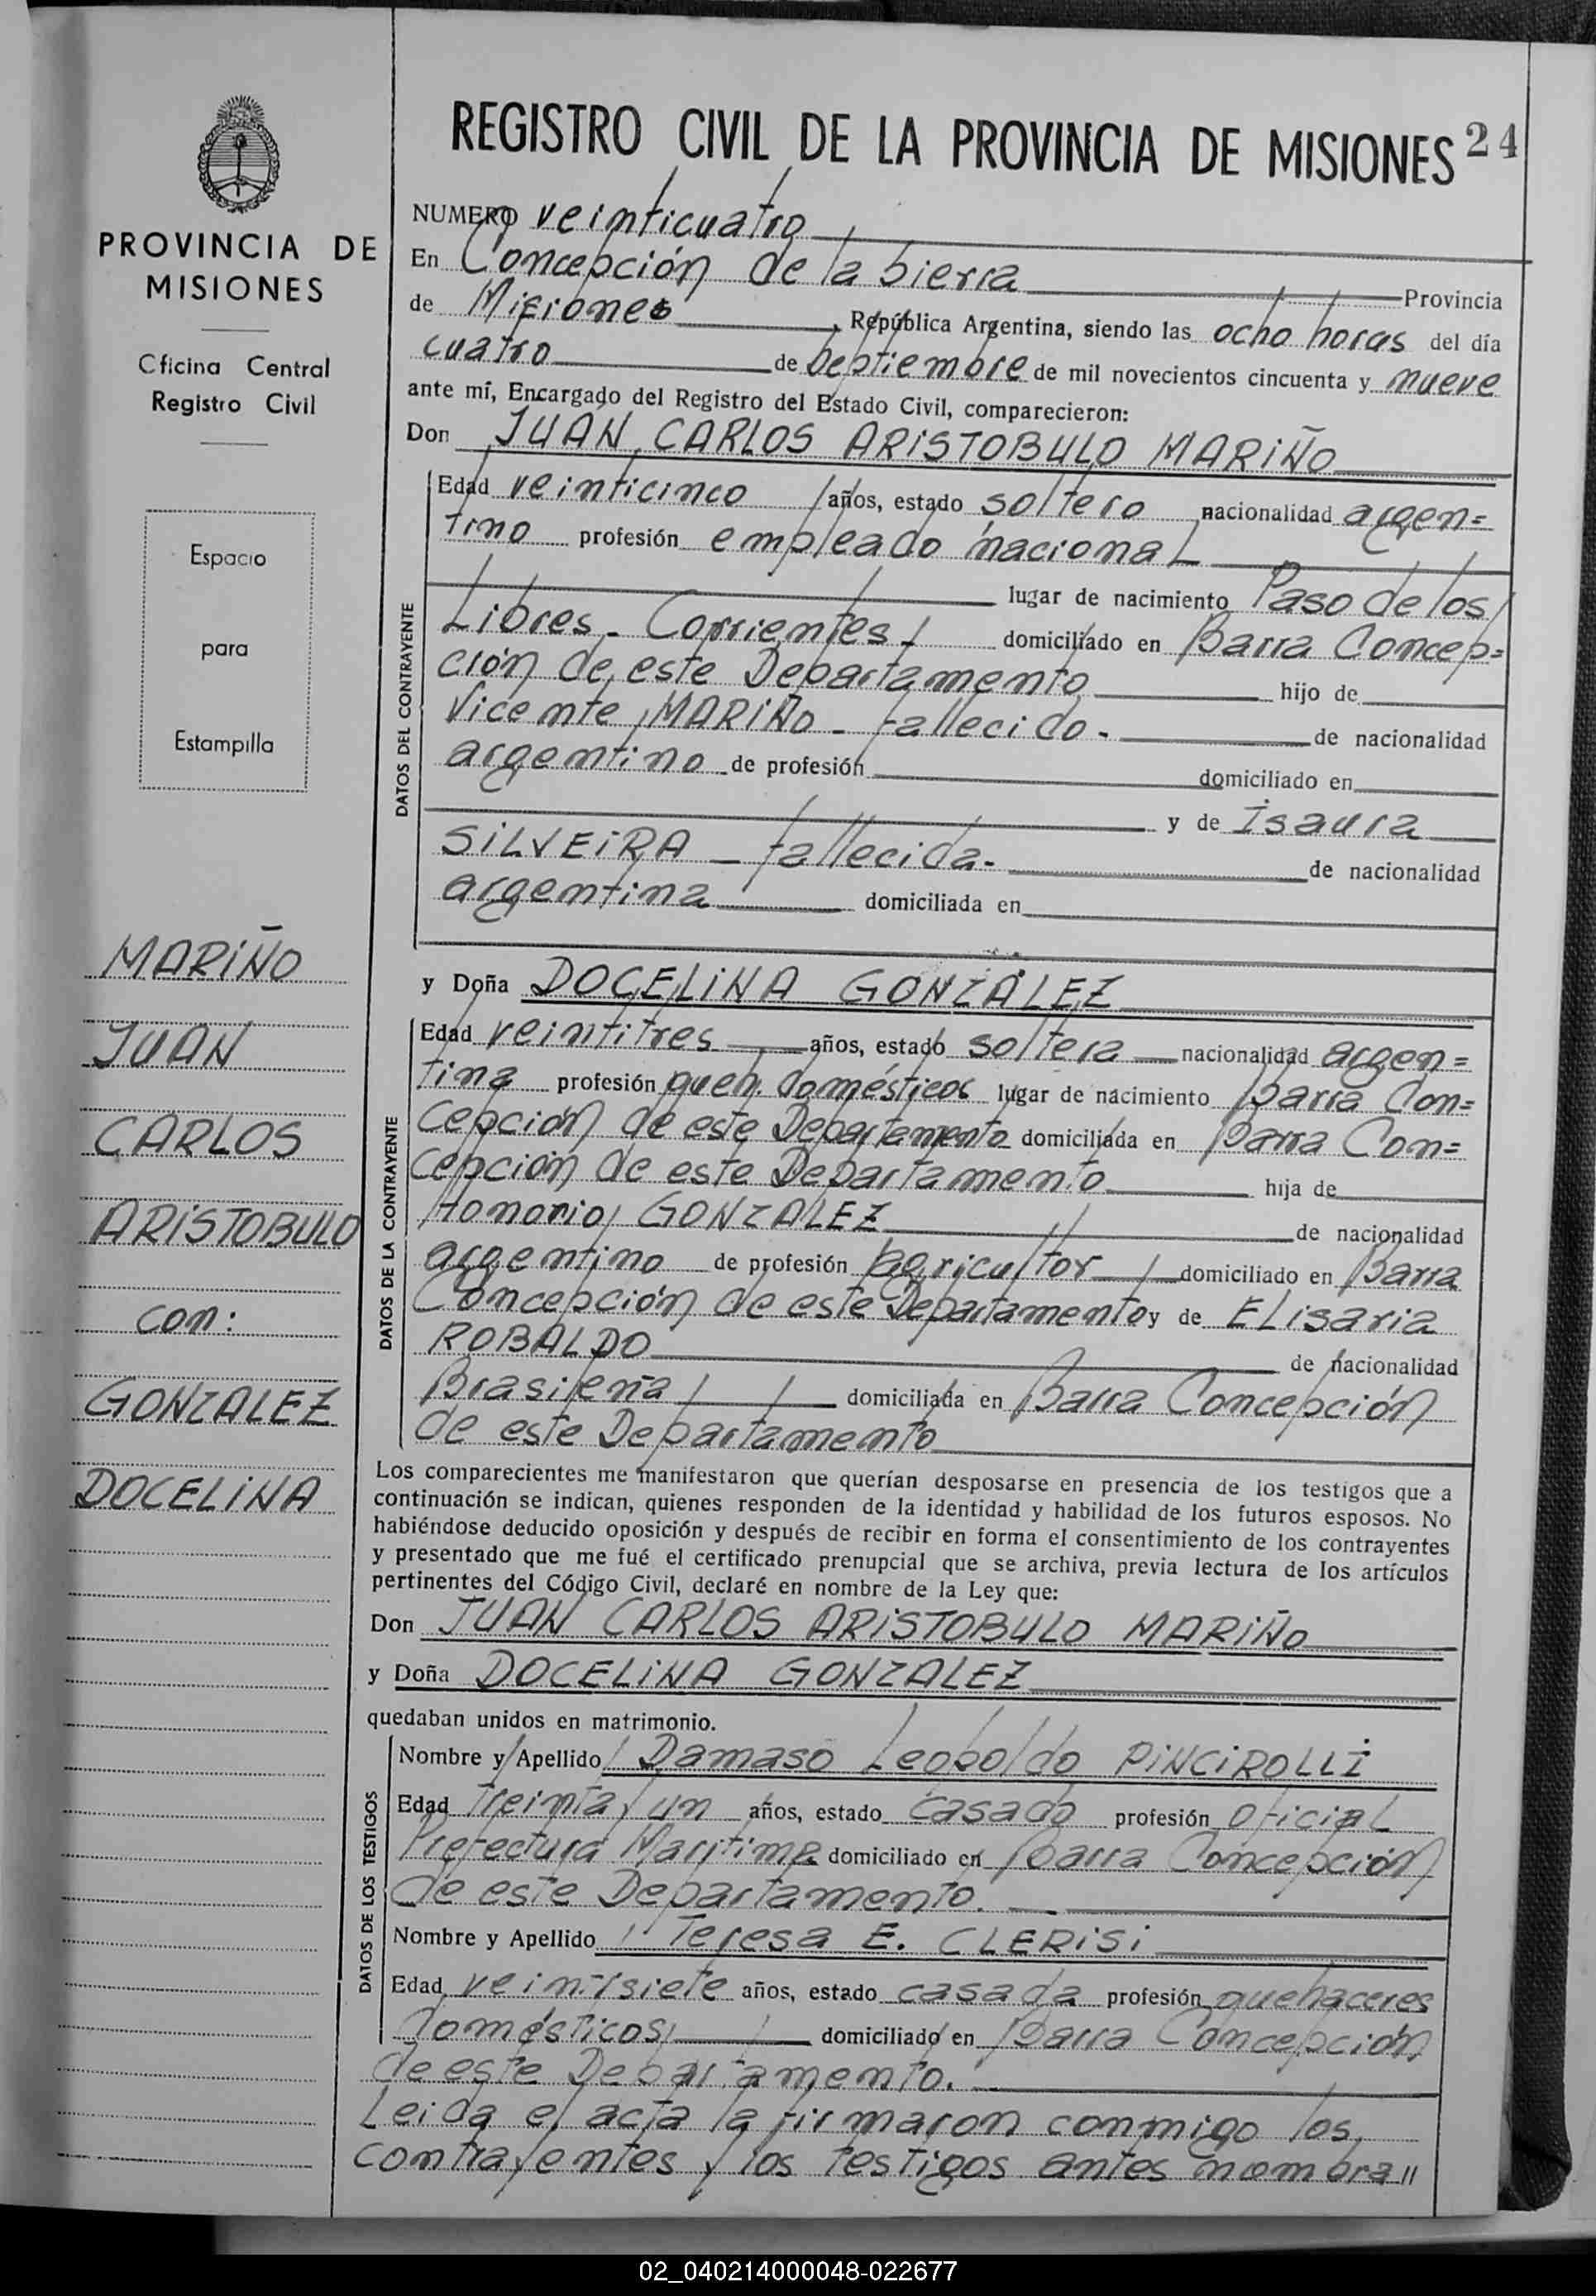 REGISTRO CIVIL DE LA PROVINCIA DE MISIONES 24
PROVINCIA DE
MISIONES
Oficina Central
Registro Civil
Espacio
para
Estampilla
MARIÑO
JUAN
CARLOS
ARISTOBULO
con:
GONZALEZ
DOCELINA
NUMERO veinticuatro
En Concepción de la Sierra Provincia
de Misiones, República Argentina, siendo las ocho horas del día
cuatro de Septiembre de mil novecientos cincuenta y nueve
ante mí, Encargado del Registro del Estado Civil, comparecieron:
Don JUAN CARLOS ARISTOBULO MARIÑO
DATOS DEL CONTRAYENTE
Edad veinticinco años, estado soltero nacionalidad argen=
tino profesión empleado nacional
lugar de nacimiento Paso de los
Libres - Corrientes domiciliado en Barra Concep=
ción de este Departamento hijo de
Vicente MARIÑO - fallecido - de nacionalidad
argentino de profesión domiciliado en
y de Isaura
SILVEIRA - fallecida - de nacionalidad
argentina domiciliada en
y Doña DOCELINA GONZÁLEZ
DATOS DE LA CONTRAYENTE
Edad veintitres años, estado soltera nacionalidad argen=
tina profesión queh. domésticos lugar de nacimiento Barra Con=
cepción de este Departamento domiciliada en Barra Con=
cepción de este Departamento hija de
Honorio GONZALEZ de nacionalidad
argentino de profesión agricultor domiciliado en Barra
Concepción de este Departamento y de Elisaria
ROBALDO de nacionalidad
Brasileña domiciliada en Barra Concepción
de este Departamento
Los comparecientes me manifestaron que querían desposarse en presencia de los testigos que a
continuación se indican, quienes responden de la identidad y habilidad de los futuros esposos. No
habiéndose deducido oposición y después de recibir en forma el consentimiento de los contrayentes
y presentado que me fué el certificado prenupcial que se archiva, previa lectura de los artículos
pertinentes del Código Civil, declaré en nombre de la Ley que:
Don JUAN CARLOS ARISTOBULO MARIÑO
y Doña DOCELINA GONZALEZ
quedaban unidos en matrimonio.
DATOS DE LOS TESTIGOS
Nombre y Apellido Damaso Leopoldo PINCIROLLI
Edad Treinta y un años, estado casado profesión Oficial
Prefectura Maritima domiciliado en Barra Concepción
de este Departamento.
Nombre y Apellido Teresa E. CLERISI
Edad veintisiete años, estado casada profesión quehaceres
domésticos domiciliado en Barra Concepción
de este Departamento.
Leida el acta la firmaron conmigo los
contrayentes y los testigos antes nombra"
02_040214000048-022677